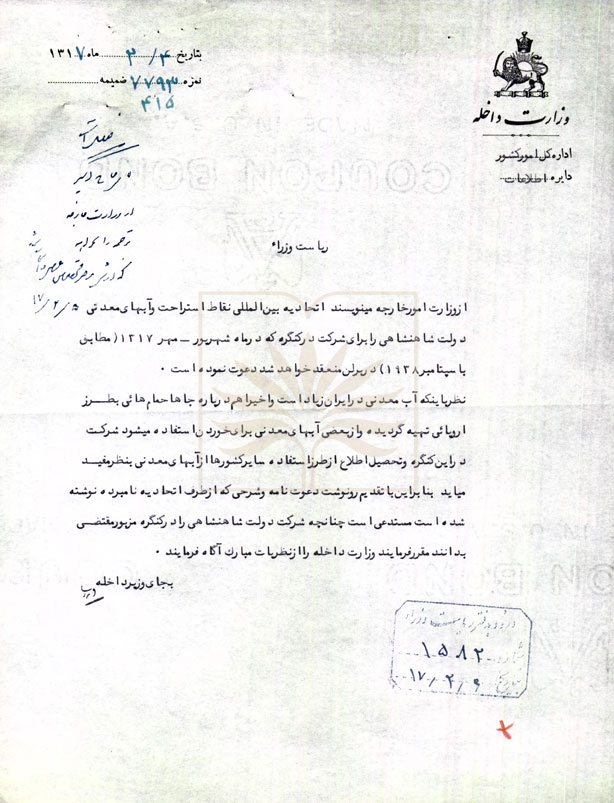 وزارت داخله
اداره کل امور کشور
دایره اطلاعات
بتاریخ ۳/۴ ماه ۱۳۱۷
نمره ۷۷۹۳ ضمیمه
۴۱۵
از وزارت خارجه
ترجمه را بخواهید
۱۷/۲/۵
ریاست وزراء
از وزارت امور خارجه مینویسند اتحادیه بین المللی نقاط استراحت و آبهای معدنی
دولت شاهنشاهی را برای شرکت در کنگره که در ماه شهریور ــ مهر ۱۳۱۷ ( مطابق
با سپتامبر ۱۹۳۸) در برلن منعقد خواهد شد دعوت نموده است .
نظر باینکه آب معدنی در ایران زیاد است و اخیراً هم در پاره جاها حمام هائی بطرز
اروپائی تهیه گردیده و از بعضی آبهای معدنی برای خوردن استفاده میشود شرکت
در این کنگره و تحصیل اطلاع از طرز استفاده سایر کشورها از آبهای معدنی بنظر مفید
میاید بنابراین با تقدیم رونوشت دعوت نامه و شرحی که از طرف اتحادیه نامبرده نوشته
شده است مستدعی است چنانچه شرکت دولت شاهنشاهی را در کنگره مزبور مقتضی
بدانند مقرر فرمایند وزارت داخله را از نظریات مبارک آگاه فرمایند .
بجای وزیر داخله
ورود بدفتر ریاست وزراء
شماره ۱۵۸۲
بتاریخ ۱۷/۲/۹